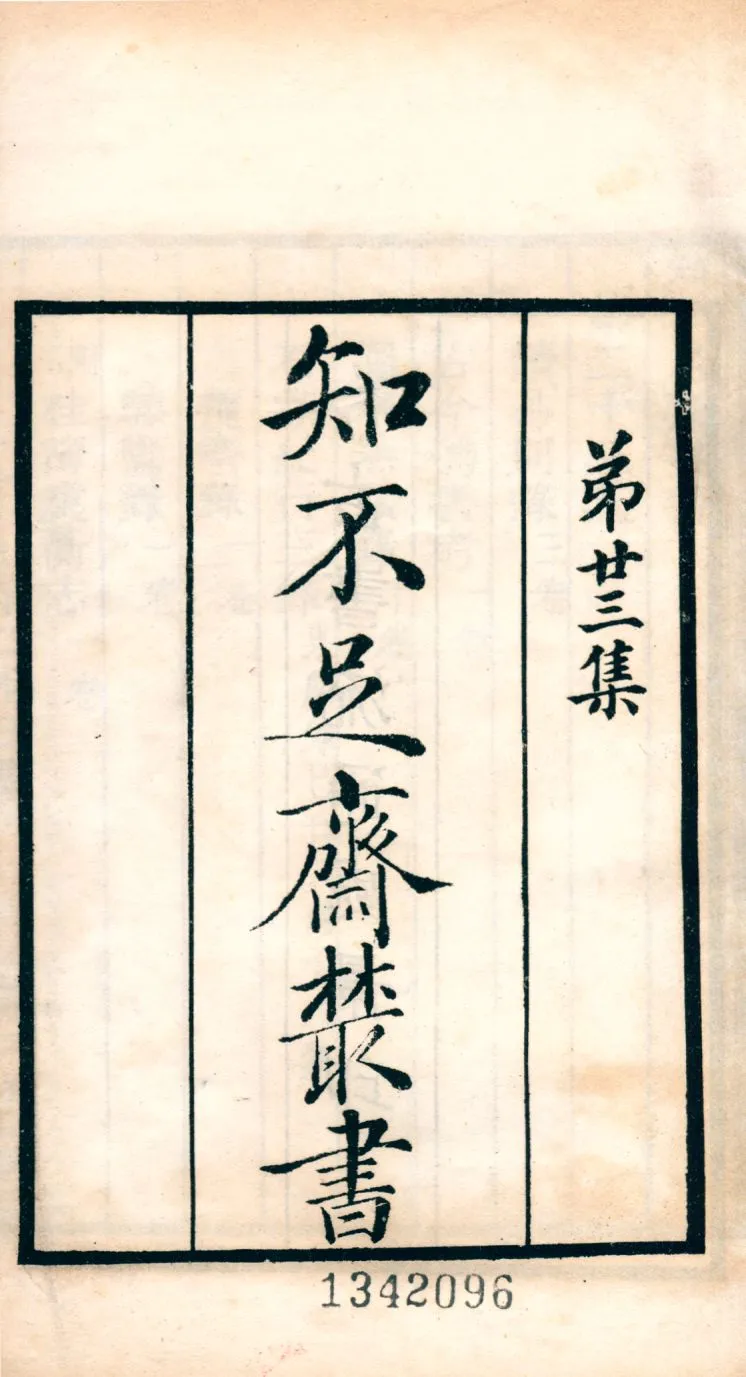 弟廿三集
知不足齋叢書
1342096